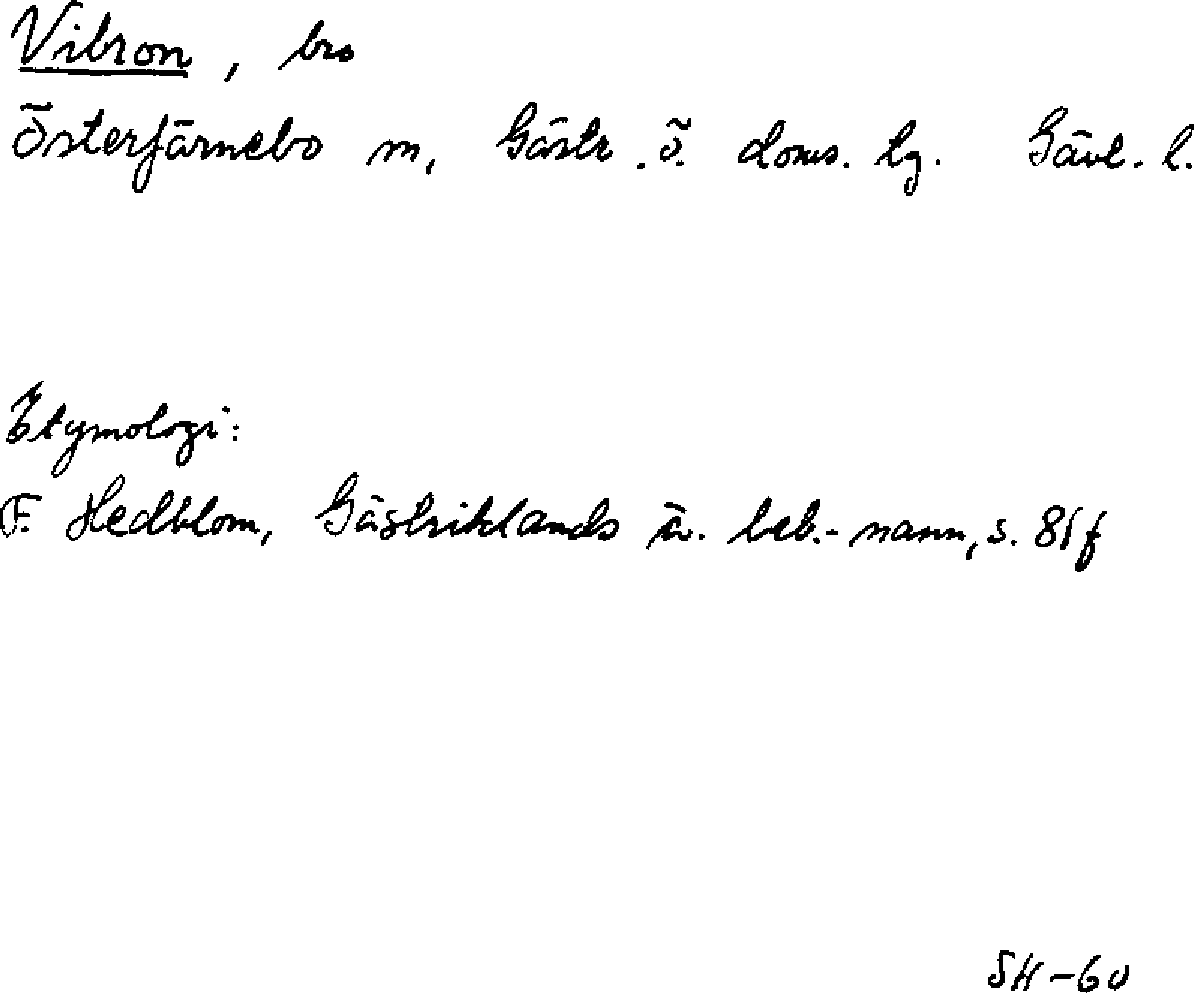 Vibron, bro
Österfärnebo sn, Gästr. ö. doms. lg. Gävl. l.
Etymologi:
F. Hedblom, Gästriklands ä. beb.-namn, s. 81f
SH-60